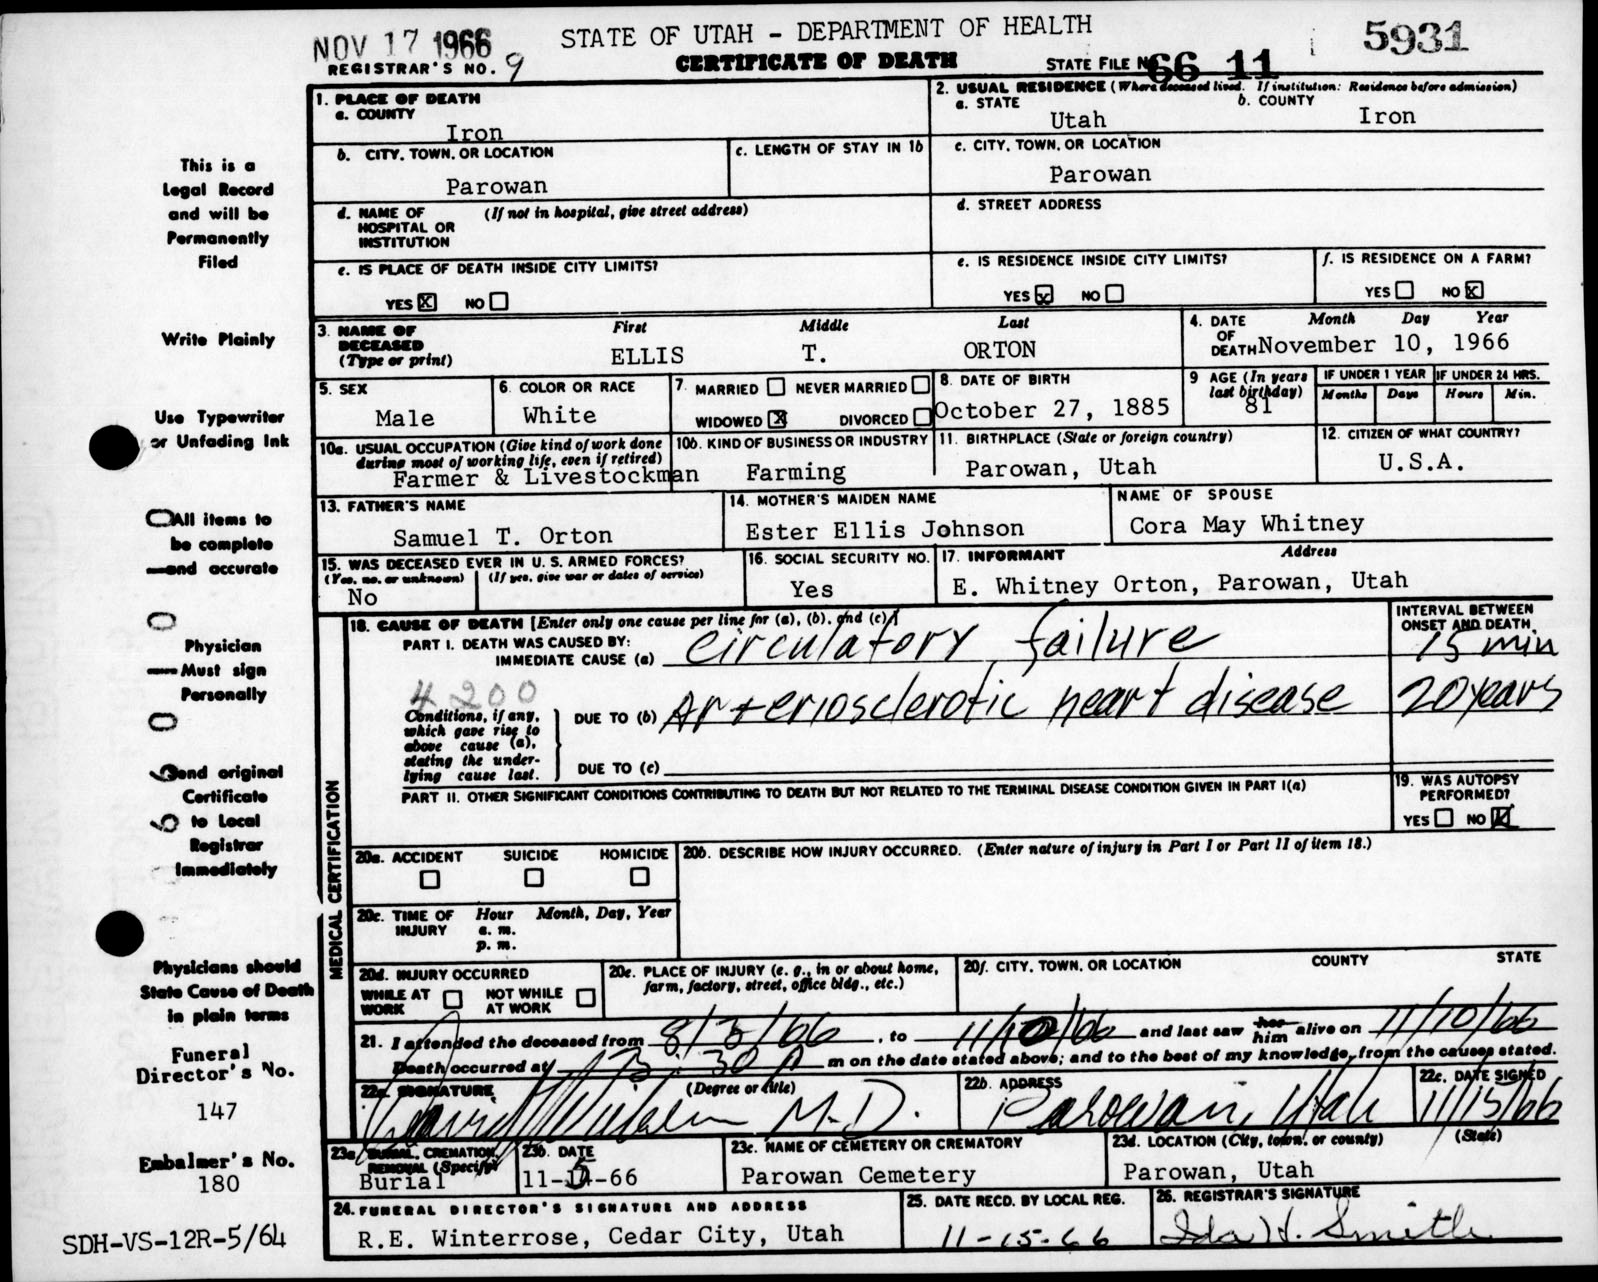 NOV 17 1966 STATE OF UTAH - DEPARTMENT OF HEALTH 5931
REGISTRAR'S NO. 9 CERTIFICATE OF DEATH STATE FILE N 66 11
1. PLACE OF DEATH
a. COUNTY
Iron
2. USUAL RESIDENCE (Where deceased lived. If institution: Residence before admission)
a. STATE b. COUNTY
Utah Iron
b. CITY, TOWN, OR LOCATION c. LENGTH OF STAY IN 1b
Parowan
c. CITY, TOWN, OR LOCATION
Parowan
d. NAME OF (If not in hospital, give street address)
HOSPITAL OR
INSTITUTION
d. STREET ADDRESS
e. IS PLACE OF DEATH INSIDE CITY LIMITS?
YES X NO
e. IS RESIDENCE INSIDE CITY LIMITS?
YES X NO
f. IS RESIDENCE ON A FARM?
YES NO X
3. NAME OF First Middle Last
DECEASED
(Type or print) ELLIS T. ORTON
4. DATE Month Day Year
OF
DEATH November 10, 1966
5. SEX
Male
6. COLOR OR RACE
White
7. MARRIED NEVER MARRIED
WIDOWED X DIVORCED
8. DATE OF BIRTH
October 27, 1885
9 AGE (In years
last birthday)
81
IF UNDER 1 YEAR IF UNDER 24 HRS.
Months Days Hours Min.
10a. USUAL OCCUPATION (Give kind of work done
during most of working life, even if retired)
Farmer & Livestockman
10b. KIND OF BUSINESS OR INDUSTRY
Farming
11. BIRTHPLACE (State or foreign country)
Parowan, Utah
12. CITIZEN OF WHAT COUNTRY?
U.S.A.
13. FATHER'S NAME
Samuel T. Orton
14. MOTHER'S MAIDEN NAME
Ester Ellis Johnson
NAME OF SPOUSE
Cora May Whitney
15. WAS DECEASED EVER IN U. S. ARMED FORCES?
(Yes, no, or unknown) (If yes, give war or dates of service)
No
16. SOCIAL SECURITY NO.
Yes
17. INFORMANT Address
E. Whitney Orton, Parowan, Utah
18. CAUSE OF DEATH [Enter only one cause per line for (a), (b), and (c)]
PART I. DEATH WAS CAUSED BY:
IMMEDIATE CAUSE (a) Circulatory failure
INTERVAL BETWEEN
ONSET AND DEATH
15 min
4200
Conditions, if any,
which gave rise to
above cause (a),
stating the under-
lying cause last.
DUE TO (b) Arteriosclerotic heart disease 20 years
DUE TO (c)
PART II. OTHER SIGNIFICANT CONDITIONS CONTRIBUTING TO DEATH BUT NOT RELATED TO THE TERMINAL DISEASE CONDITION GIVEN IN PART I(a)
19. WAS AUTOPSY
PERFORMED?
YES NO X
MEDICAL CERTIFICATION
20a. ACCIDENT SUICIDE HOMICIDE
20b. DESCRIBE HOW INJURY OCCURRED. (Enter nature of injury in Part I or Part II of item 18.)
20c. TIME OF Hour Month, Day, Year
INJURY a. m.
p. m.
20d. INJURY OCCURRED
WHILE AT NOT WHILE
WORK AT WORK
20e. PLACE OF INJURY (e. g., in or about home,
farm, factory, street, office bldg., etc.)
20f. CITY, TOWN, OR LOCATION COUNTY STATE
21. I attended the deceased from 8/3/66, to 11/10/66 and last saw her him alive on 11/10/66
Death occurred at :30 m on the date stated above; and to the best of my knowledge, from the causes stated.
22a. SIGNATURE (Degree or title)
M.D.
22b. ADDRESS
Parowan, Utah
22c. DATE SIGNED
11/15/66
23a BURIAL, CREMATION,
REMOVAL (Specify)
Burial
23b. DATE
11-15-66
23c. NAME OF CEMETERY OR CREMATORY
Parowan Cemetery
23d. LOCATION (City, town, or county) (State)
Parowan, Utah
24. FUNERAL DIRECTOR'S SIGNATURE AND ADDRESS
R.E. Winterrose, Cedar City, Utah
25. DATE RECD. BY LOCAL REG.
11-15-66
26. REGISTRAR'S SIGNATURE
Ida H. Smith
This is a
Legal Record
and will be
Permanently
Filed
Write Plainly
Use Typewriter
or Unfading Ink
All items to
be complete
and accurate
Physician
Must sign
Personally
Send original
Certificate
to Local
Registrar
Immediately
Physicians should
State Cause of Death
in plain terms
Funeral
Director's No.
147
Embalmer's No.
180
SDH-VS-12R-5/64